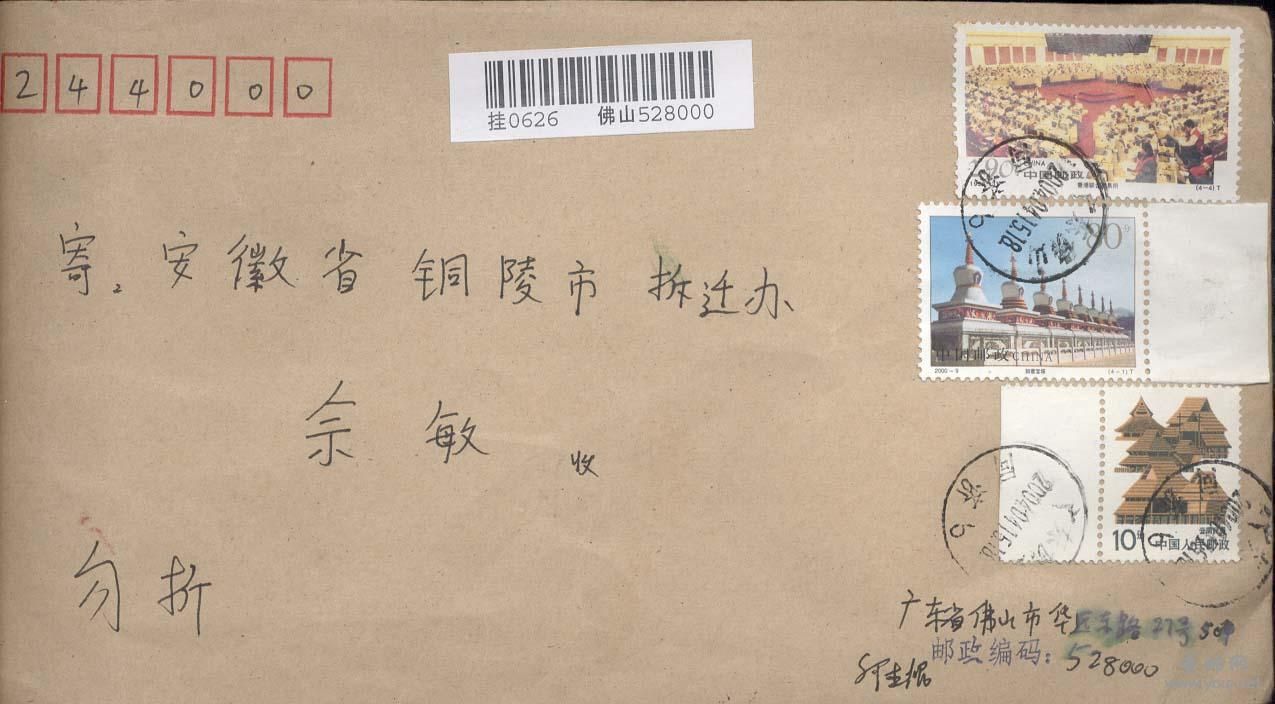 244000
挂0626 佛山528000
中国邮政
(4-4)T
寄：安徽省 铜陵市 拆迁办
80分
中国邮政 CHINA
2000-9 如意宝塔 (4-1)T
佘敏 收
2004.04.15.18
10分 中国人民邮政
勿折
广东省佛山市华远东路27号
邮政编码：528000